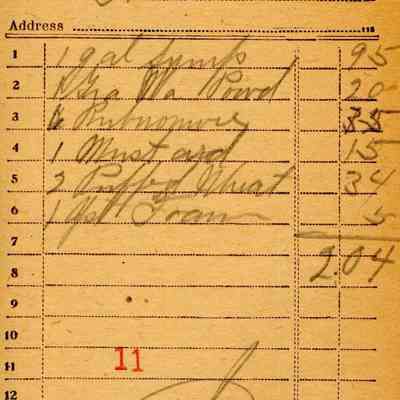 Address
1 1 gal Syrup 95
2 1 Gra Pa Powd 20
3 Rubnomore 35
4 1 Mustard 15
5 2 Puffed Wheat 34
6 1 5
7
8 2.04
9
10
11 11
12